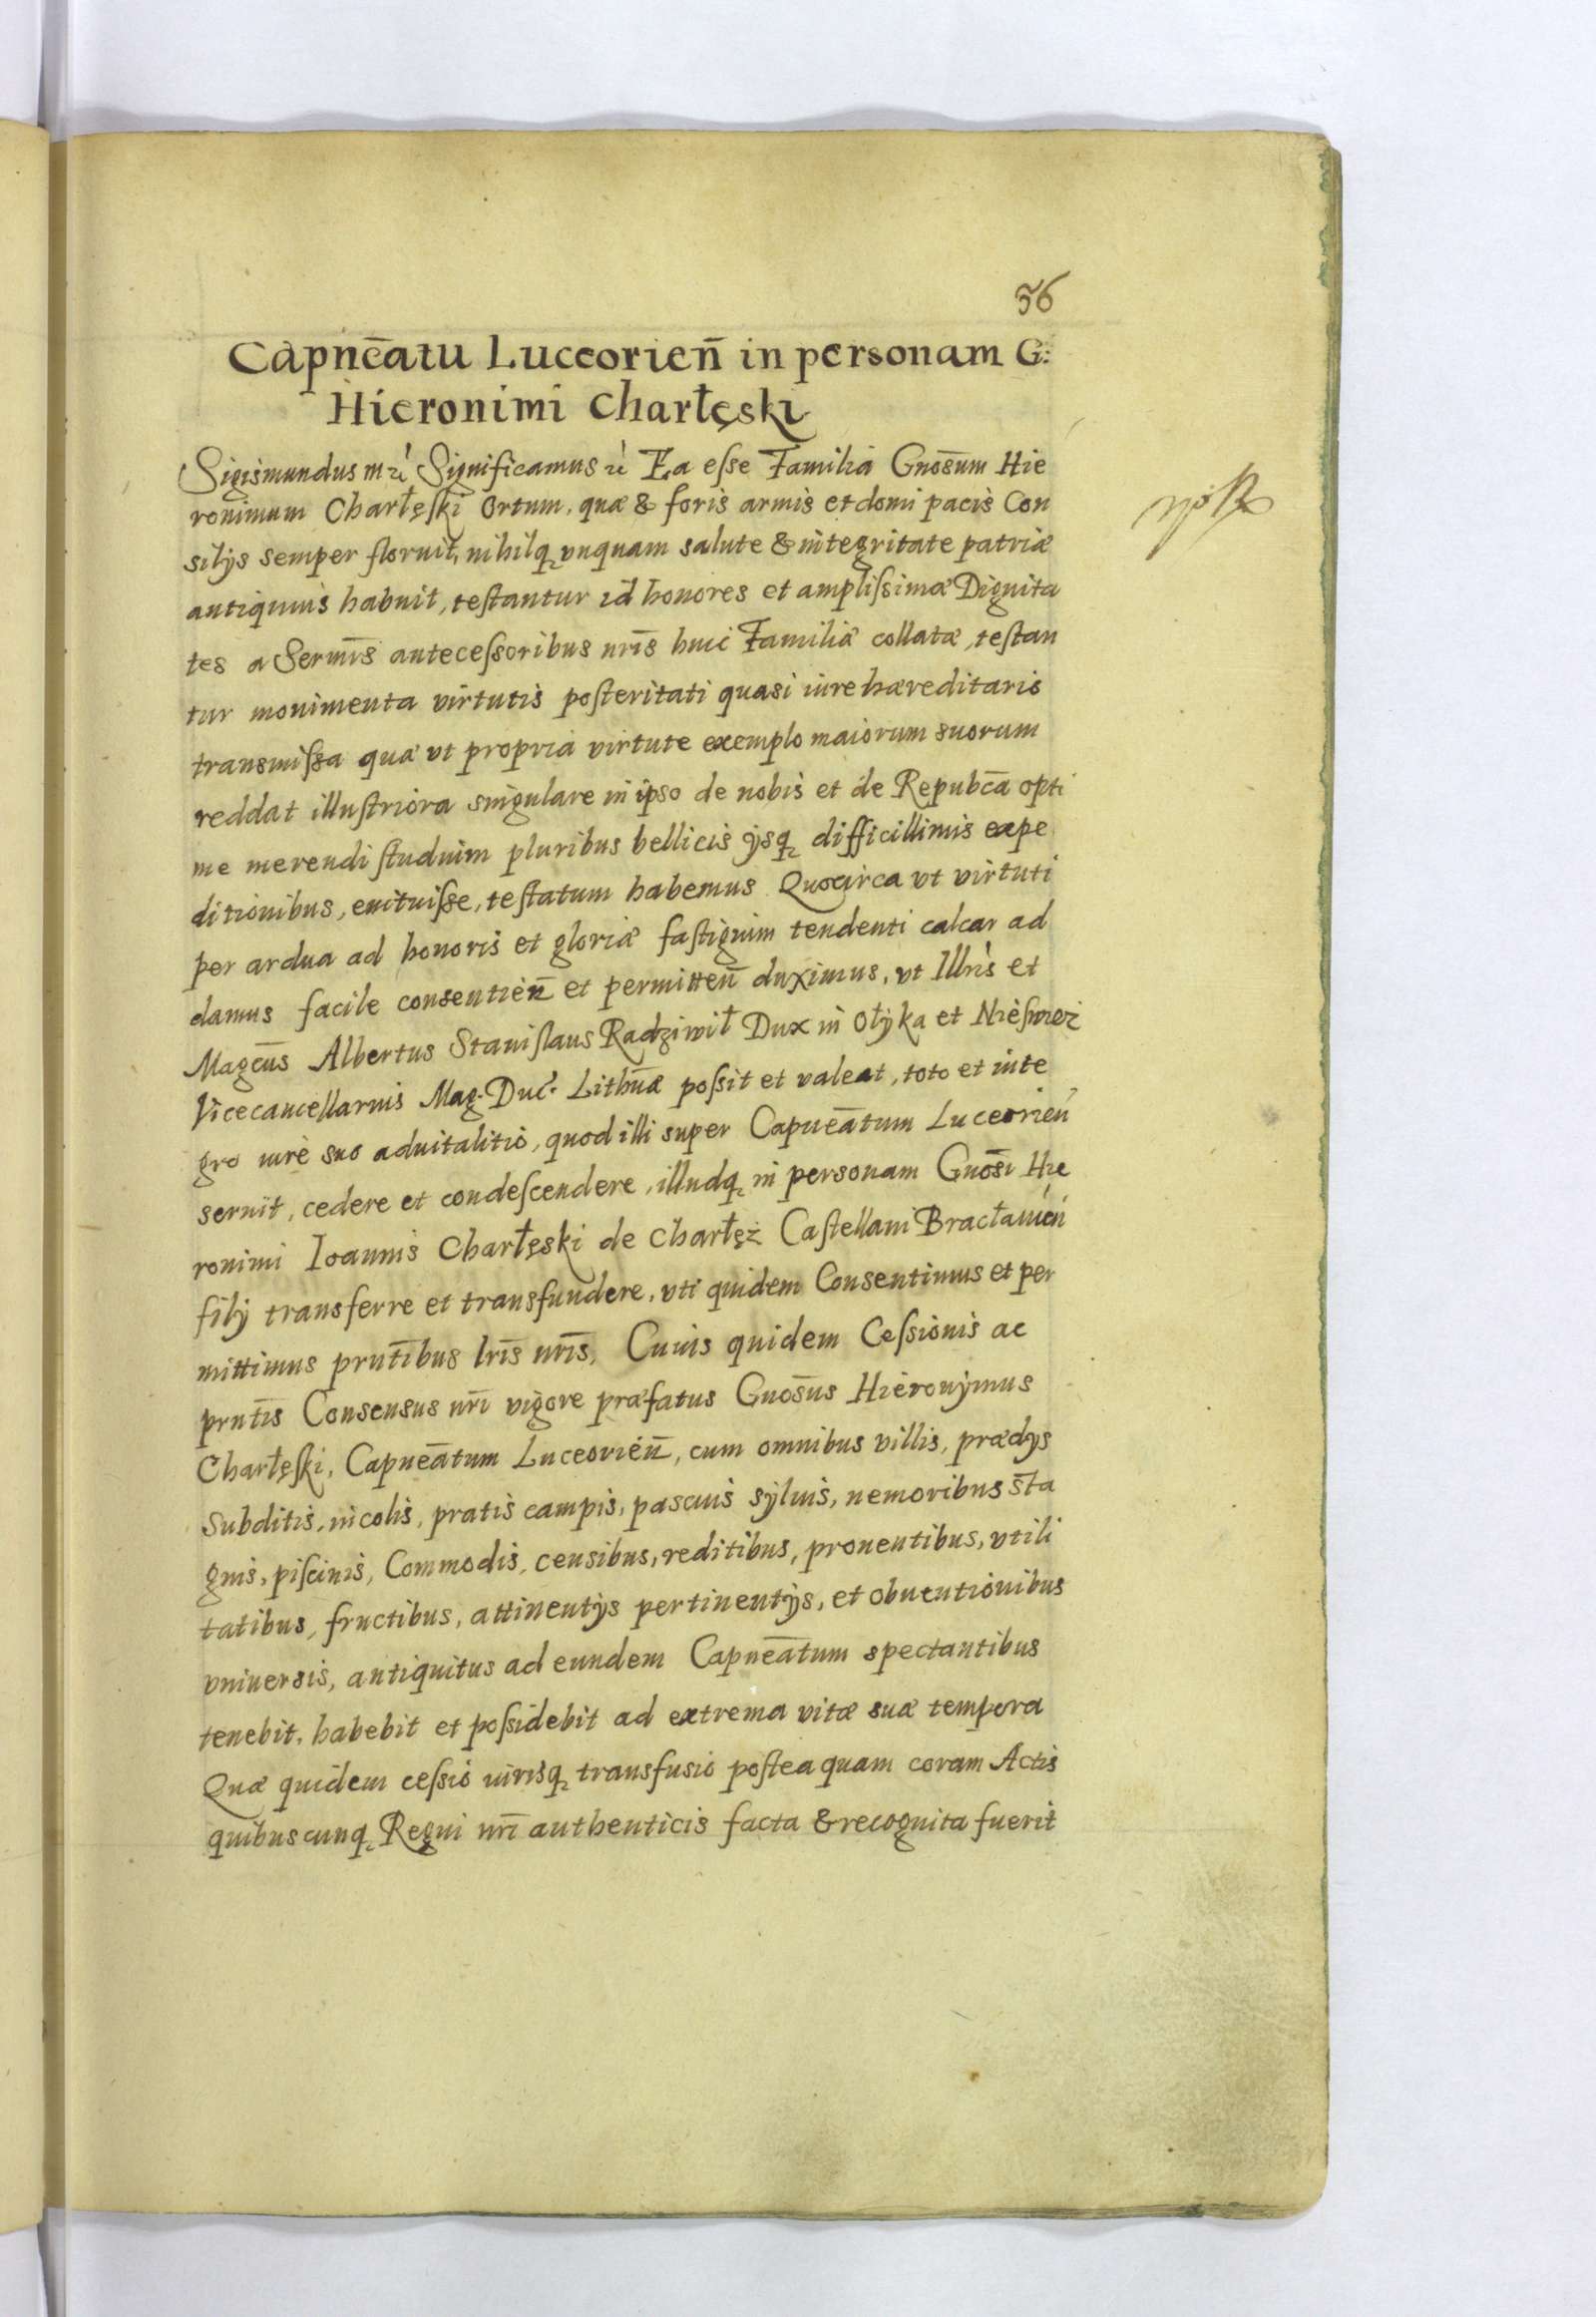 36
Capnēatu Luceorien̄ in personam G:
Hieronimi Charłęski
Sigismundus Significamus Ea esse Familia Gnosūm Hie
ronimum Charłęski Ortum, quæ & foris armis et domi pacis Con
silijs semper floruit, nihilq́ vnquam salute & integritate patriæ
antiquius habuit, testantur id honores et amplissimæ Dignita
tes a Sermīs antecessoribus nrīs huic Familiæ collatæ, testan
tur monimenta virtutis posteritati quasi iure hæreditario
transmissa quæ vt propria virtute exemplo maiorum suorum
reddat illustriora singulare in ipso de nobis et de Repubcā opti
me merendi studium pluribus bellicis ijsq́ difficillimis expe
ditionibus, enituisse, testatum habemus Quocirca vt virtuti
per ardua ad honoris et gloriæ fastigium tendenti calcar ad
damus facile consentien̄ et permitten̄ duximus, vt Illris et
Magcūs Albertus Stanislaus Radziwił Dux in Ołyka et Nieswiez
Vicecancellarius Mag. Duc. Lithūæ possit et valeat, toto et inte
gro iure suo aduitalitio, quod illi super Capneātum Luceorien̄
seruit, cedere et condescendere, illudq́ in personam Gnosī Hie
ronimi Ioannis Charłęski de Charłęż Castellani Bracłauien̄
filij transferre et transfundere, vti quidem Consentimus et per
mittimus prntībus lrīs nrīs, Cuius quidem Cessionis ac
prntīs Consensus nrī vigore præfatus Gnosūs Hieronymus
Charłęski, Capneātum Luceorien̄, cum omnibus villis, prædijs
Subditis, incolis, pratis campis, pascuis syluis, nemoribus sta
gnis, piscinis, Commodis, censibus, reditibus, prouentibus, vtili
tatibus, fructibus, attinentijs pertinentijs, et obuentionibus
vniuersis, antiquitus ad eundem Capneātum spectantibus
tenebit, habebit et possidebit ad extrema vitæ suæ tempora
Quæ quidem cessio iurisq́ transfusio postea quam coram Actis
quibuscunq́ Regni nrī authenticis facta & recognita fuerit